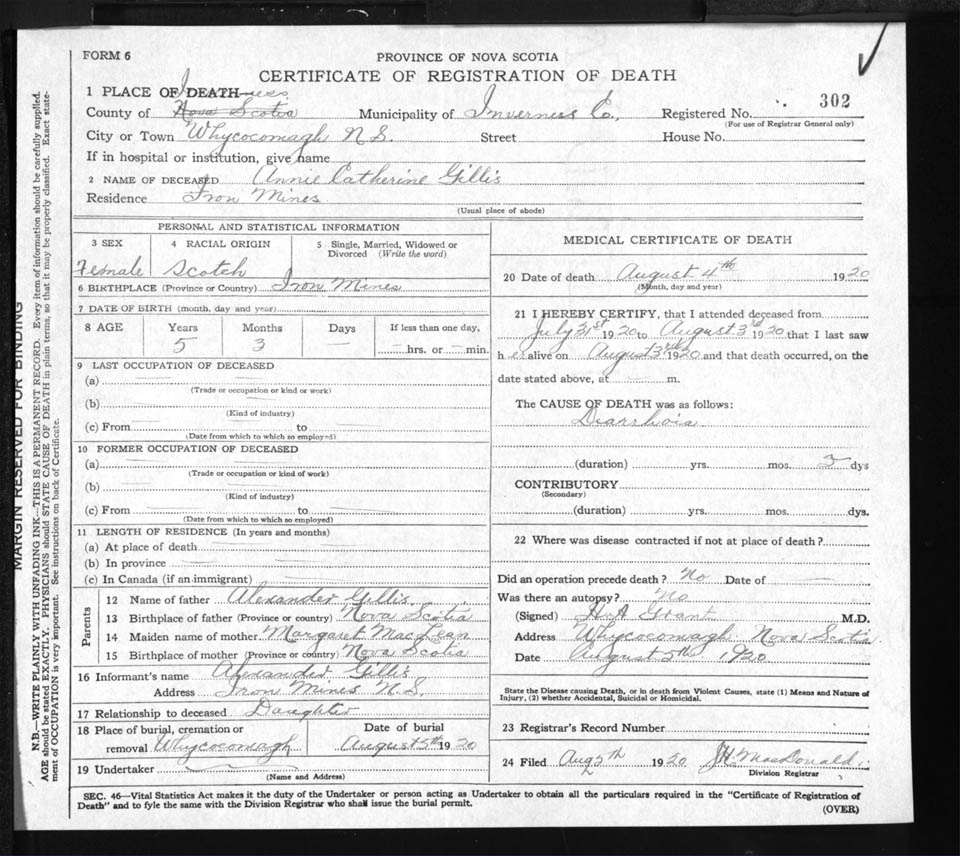 FORM 6
PROVINCE OF NOVA SCOTIA
CERTIFICATE OF REGISTRATION OF DEATH
1 PLACE OF DEATH Inverness
County of Nova Scotia Municipality of Inverness Co., Registered No. 302
(For use of Registrar General only)
City or Town Whycocomagh N.S. Street House No.
If in hospital or institution, give name
2 NAME OF DECEASED Annie Catherine Gillis
Residence Iron Mines
(Usual place of abode)
PERSONAL AND STATISTICAL INFORMATION
3 SEX 4 RACIAL ORIGIN 5 Single, Married, Widowed or Divorced (Write the word)
Female Scotch
6 BIRTHPLACE (Province or Country) Iron Mines
7 DATE OF BIRTH (month, day and year)
8 AGE Years Months Days If less than one day,
5 3 — — hrs. or — min.
9 LAST OCCUPATION OF DECEASED
(a)
(Trade or occupation or kind or work)
(b)
(Kind of industry)
(c) From to
(Date from which to which so employed)
10 FORMER OCCUPATION OF DECEASED
(a)
(Trade or occupation or kind of work)
(b)
(Kind of industry)
(c) From to
(Date from which to which so employed)
11 LENGTH OF RESIDENCE (In years and months)
(a) At place of death
(b) In province
(c) In Canada (if an immigrant)
Parents
12 Name of father Alexander Gillis
13 Birthplace of father (Province or country) Nova Scotia
14 Maiden name of mother Margaret MacLean
15 Birthplace of mother (Province or country) Nova Scotia
16 Informant's name Alexander Gillis
Address Iron Mines N.S.
17 Relationship to deceased Daughter
18 Place of burial, cremation or Date of burial
removal Whycocomagh August 5th 1920
19 Undertaker
(Name and Address)
MEDICAL CERTIFICATE OF DEATH
20 Date of death August 4th 1920
(Month, day and year)
21 I HEREBY CERTIFY, that I attended deceased from
July 31st 1920 to August 3rd 1920 that I last saw
h er alive on August 3rd 1920 and that death occurred, on the
date stated above, at — m.
The CAUSE OF DEATH was as follows:
Diarrhoia
(duration) yrs. mos. 3 dys
CONTRIBUTORY
(Secondary)
(duration) yrs. mos. dys.
22 Where was disease contracted if not at place of death?
Did an operation precede death? No Date of —
Was there an autopsy? No
(Signed) H A Grant M.D.
Address Whycocomagh Nova Scotia
Date August 5th 1920
State the Disease causing Death, or in death from Violent Causes, state (1) Means and Nature of
Injury, (2) whether Accidental, Suicidal or Homicidal.
23 Registrar's Record Number
24 Filed Aug 5th 1920 MacDonald
Division Registrar
SEC. 46—Vital Statistics Act makes it the duty of the Undertaker or person acting as Undertaker to obtain all the particulars required in the "Certificate of Registration of
Death" and to fyle the same with the Division Registrar who shall issue the burial permit.
(OVER)
MARGIN RESERVED FOR BINDING
N.B.—WRITE PLAINLY WITH UNFADING INK—THIS IS A PERMANENT RECORD. Every item of information should be carefully supplied.
AGE should be stated EXACTLY. PHYSICIANS should STATE CAUSE OF DEATH in plain terms, so that it may be properly classified. Exact state-
ment of OCCUPATION is very important. See instructions on back of Certificate.